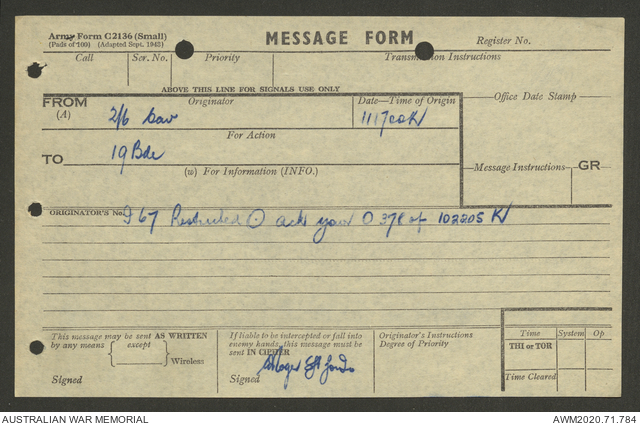 Army Form C2136 (Small)
(Pads of 100) (Adapted Sept. 1942)
MESSAGE FORM
Register No.
Call Ser. No. Priority Transmission Instructions
ABOVE THIS LINE FOR SIGNALS USE ONLY
FROM Originator Date—Time of Origin Office Date Stamp
(A) 2/6 Cav 111700K
For Action
TO 19 Bde
(W) For Information (INFO.) Message Instructions GR
ORIGINATOR'S No. I 67 Restricted ⊙ ack your O 378 of 102205 K
This message may be sent AS WRITTEN
by any means except
Wireless
Signed
If liable to be intercepted or fall into
enemy hands, this message must be
sent IN CIPHER
Signed
Originator's Instructions
Degree of Priority
Time System Op
THI or TOR
Time Cleared
AUSTRALIAN WAR MEMORIAL AWM2020.71.784